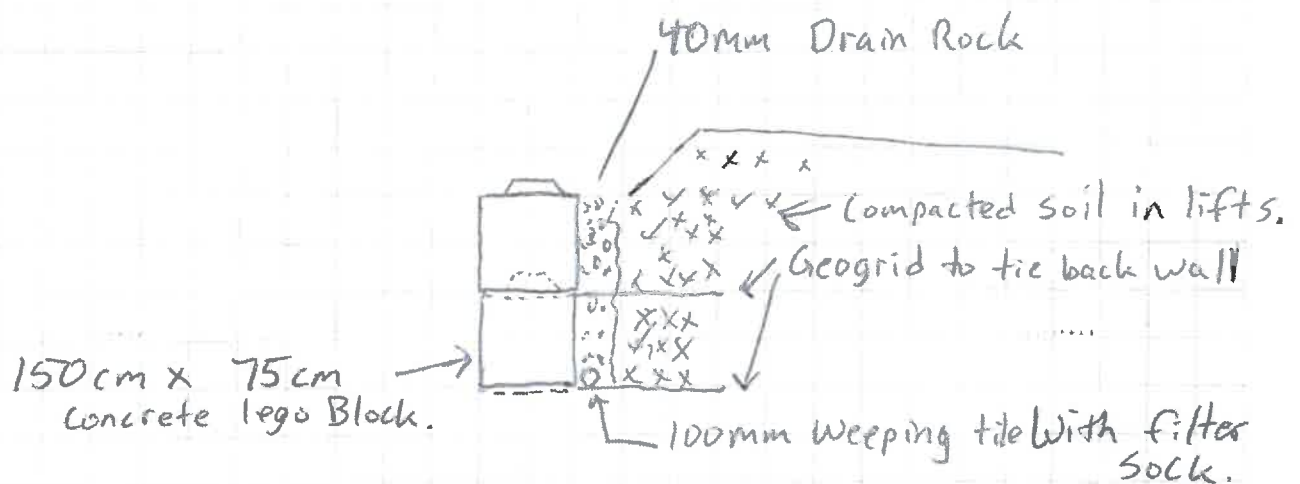 40mm Drain Rock
Compacted soil in lifts.
Geogrid to tie back wall
150cm x 75cm
concrete lego Block.
100mm Weeping tile With filter
Sock.